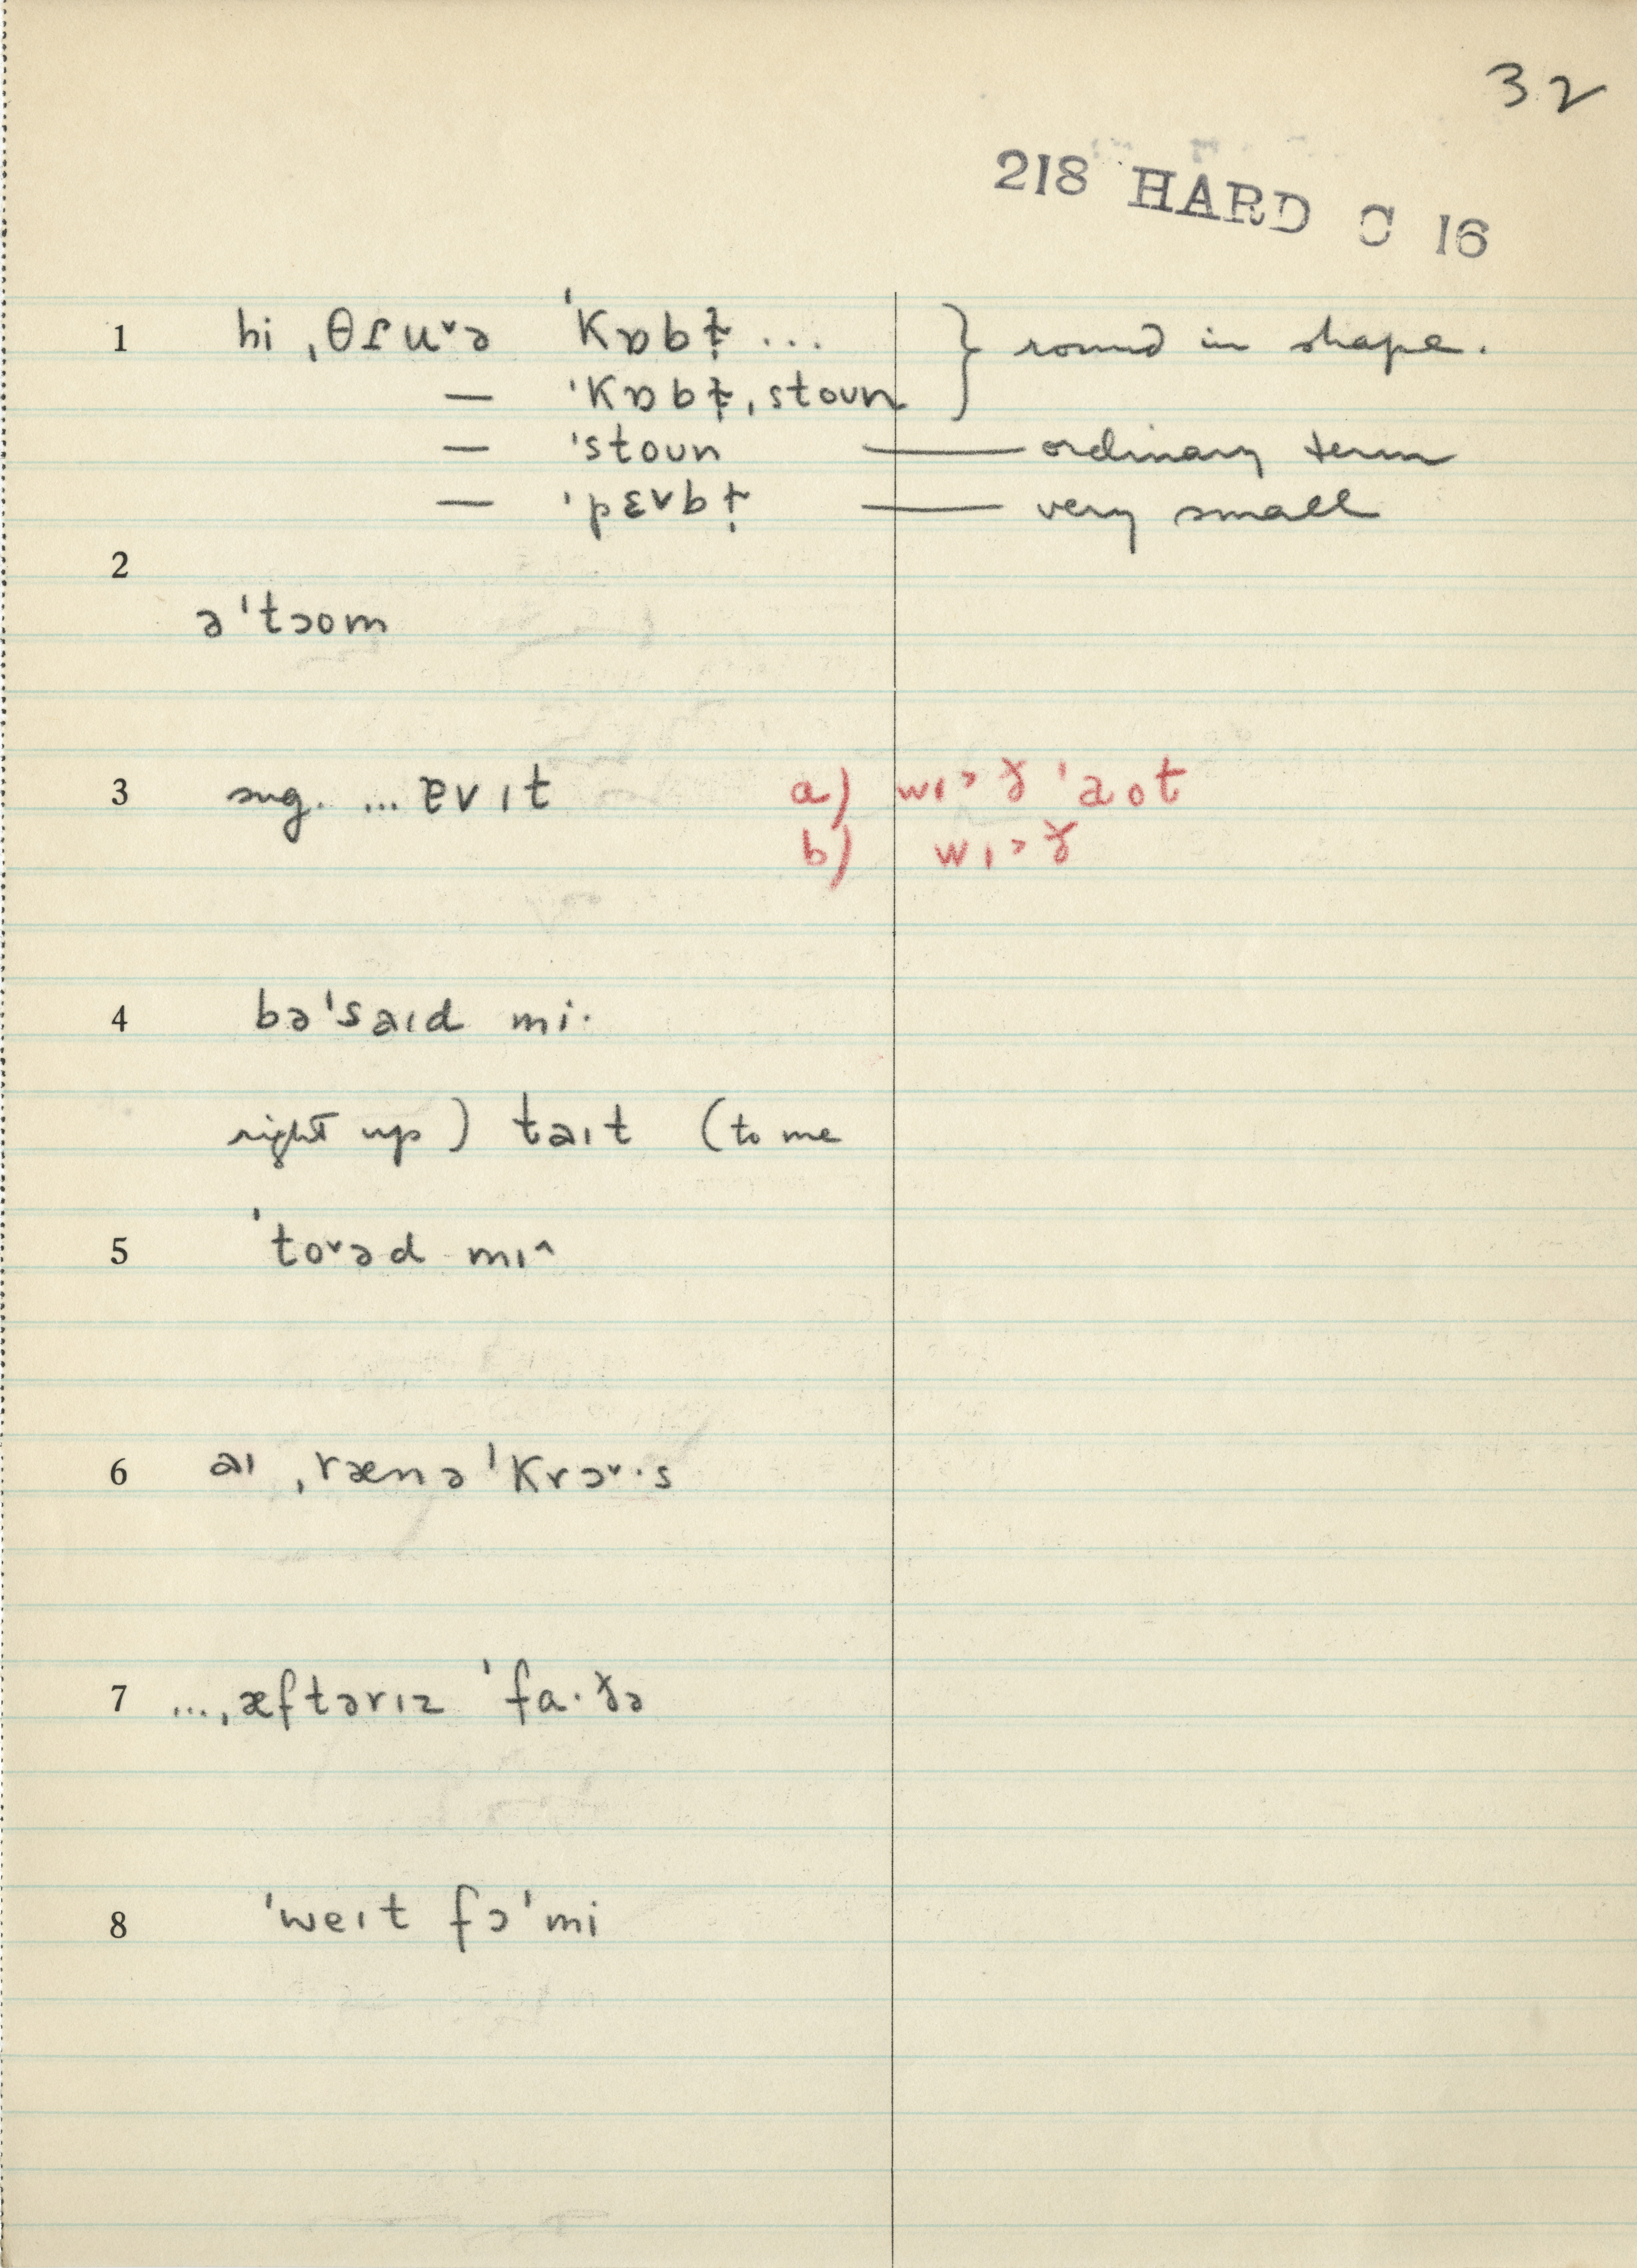 32
218 HARD C 16
1 hi ˌθɾuˇə ˈkɒbɫ̩ ... } round in shape.
— ˈkɒbɫ̩ˌstoun
— ˈstoun — ordinary term
— ˈpɛvbɫ̩ — very small
2
əˈtɔom
3 sug. ... ɐvɪt a) wɪ˃ɤ ˈaot
b) wɪ˃ɤ
4 bəˈsaɪd mi·
right up ) taɪt (to me
5 ˈtoˇəd mɪ^
6 aɪ ˌrænəˈkrɔˇ·s
7 ...ˌæftərɪz ˈfa·ɤə
8 ˈweɪt fɔˈmi